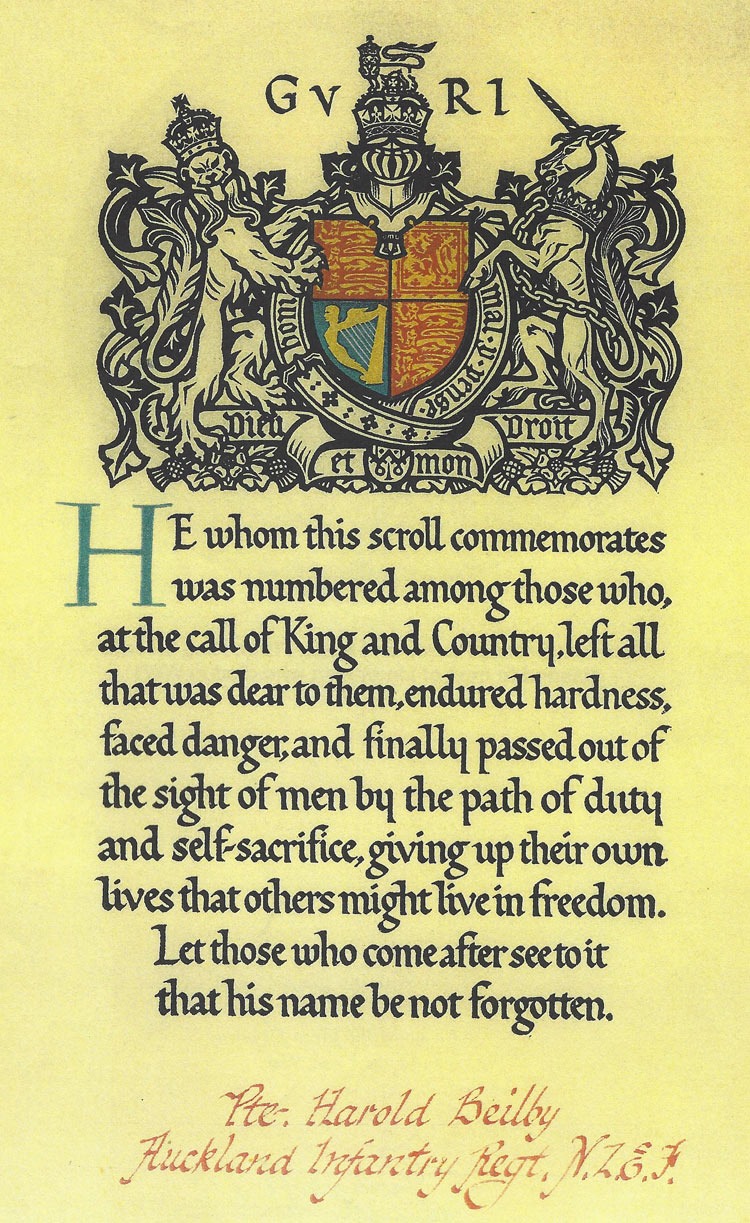 GV RI
hom
mal·y·pense
Dieu
Droit
et mon
HE whom this scroll commemorates
was numbered among those who,
at the call of King and Country, left all
that was dear to them, endured hardness,
faced danger, and finally passed out of
the sight of men by the path of duty
and self-sacrifice, giving up their own
lives that others might live in freedom.
Let those who come after see to it
that his name be not forgotten.
Pte. Harold Beilby
Auckland Infantry Regt. N.Z.E.F.